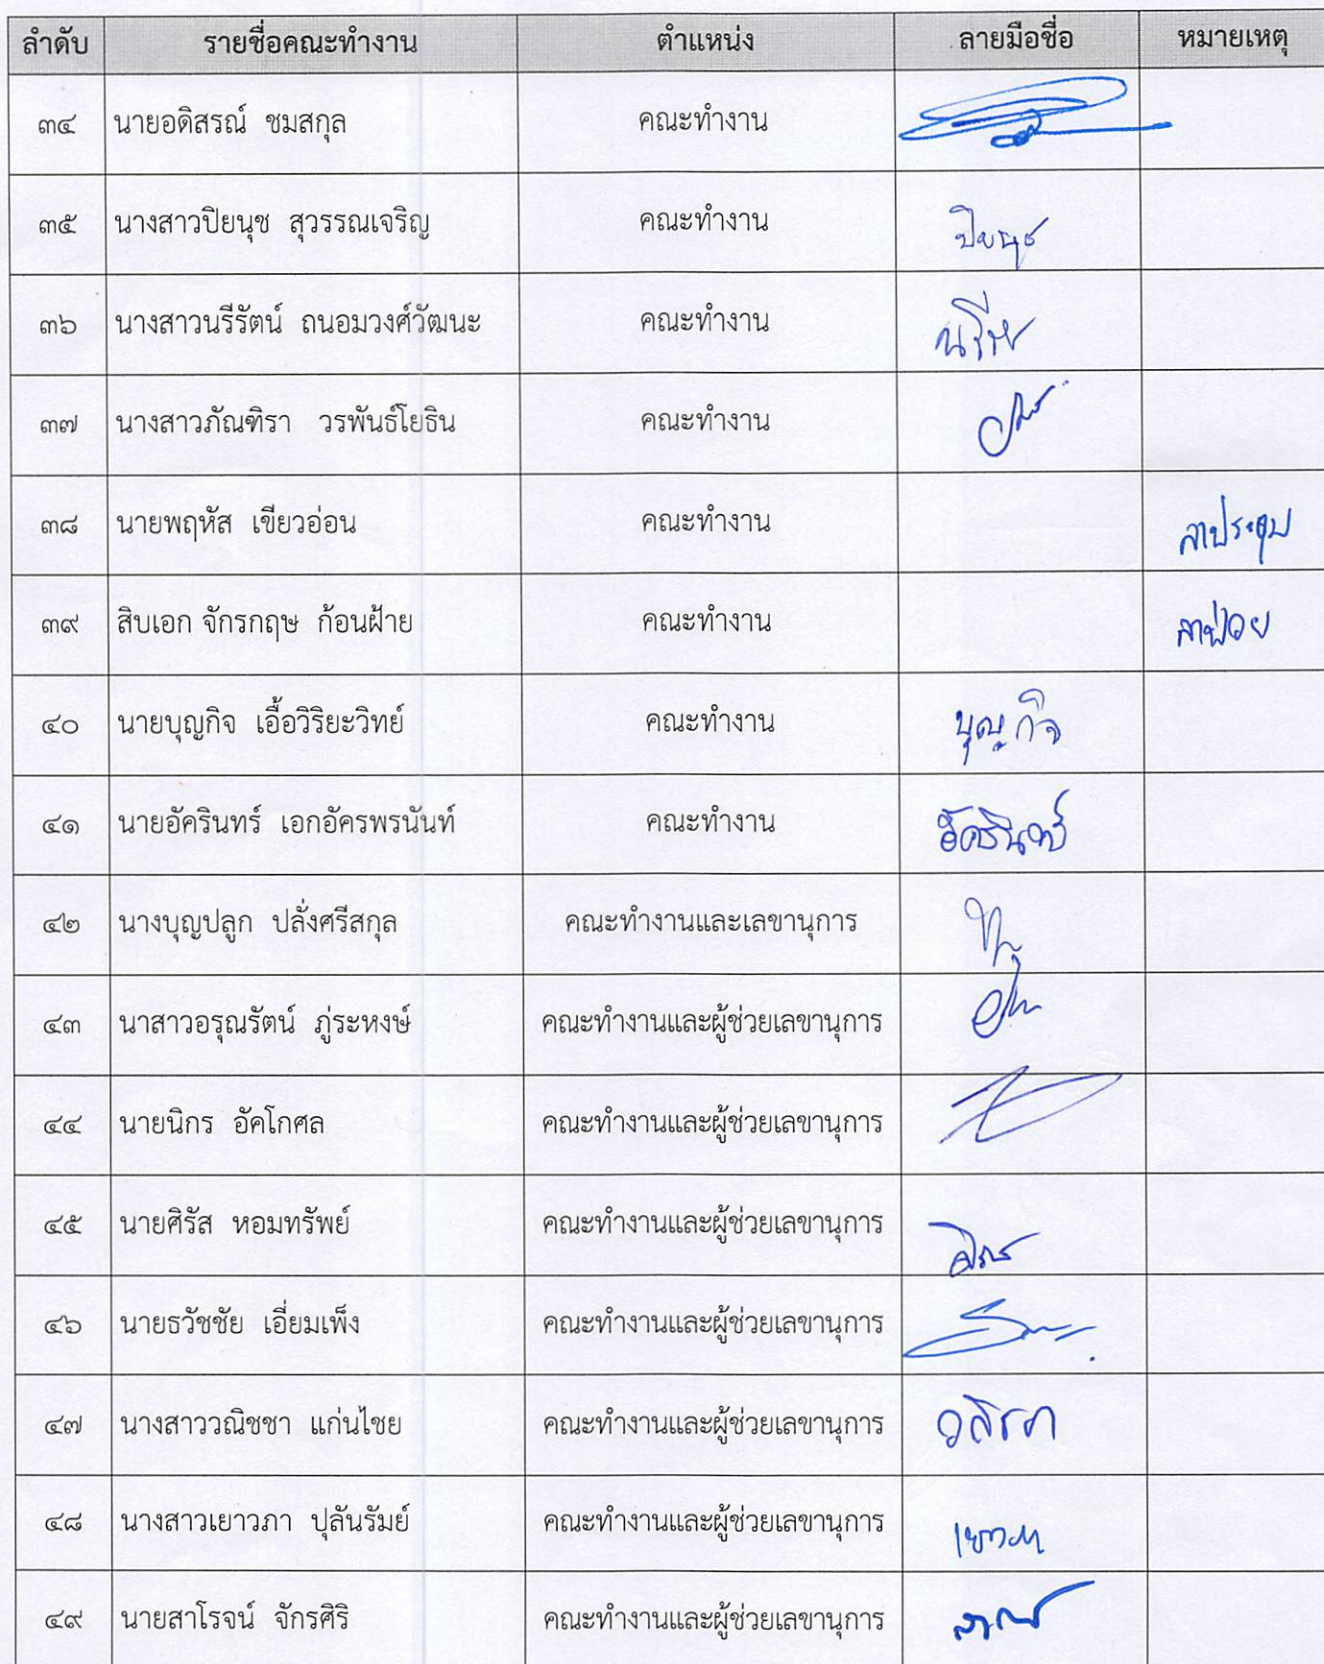 ลำดับ รายชื่อคณะทำงาน ตำแหน่ง ลายมือชื่อ หมายเหตุ
๓๔ นายอดิสรณ์ ชมสกุล คณะทำงาน
๓๕ นางสาวปิยนุช สุวรรณเจริญ คณะทำงาน ปิยนุช
๓๖ นางสาวนรีรัตน์ ถนอมวงศ์วัฒนะ คณะทำงาน
๓๗ นางสาวภัณฑิรา วรพันธ์โยธิน คณะทำงาน
๓๘ นายพฤหัส เขียวอ่อน คณะทำงาน ลาประชุม
๓๙ สิบเอก จักรกฤษ ก้อนฝ้าย คณะทำงาน ลาป่วย
๔๐ นายบุญกิจ เอื้อวิริยะวิทย์ คณะทำงาน บุญกิจ
๔๑ นายอัครินทร์ เอกอัครพรนันท์ คณะทำงาน อัครินทร์
๔๒ นางบุญปลูก ปลั่งศรีสกุล คณะทำงานและเลขานุการ
๔๓ นาสาวอรุณรัตน์ ภู่ระหงษ์ คณะทำงานและผู้ช่วยเลขานุการ
๔๔ นายนิกร อัคโกศล คณะทำงานและผู้ช่วยเลขานุการ
๔๕ นายศิรัส หอมทรัพย์ คณะทำงานและผู้ช่วยเลขานุการ
๔๖ นายธวัชชัย เอี่ยมเพ็ง คณะทำงานและผู้ช่วยเลขานุการ
๔๗ นางสาววณิชชา แก่นไชย คณะทำงานและผู้ช่วยเลขานุการ
๔๘ นางสาวเยาวภา ปุลันรัมย์ คณะทำงานและผู้ช่วยเลขานุการ
๔๙ นายสาโรจน์ จักรศิริ คณะทำงานและผู้ช่วยเลขานุการ